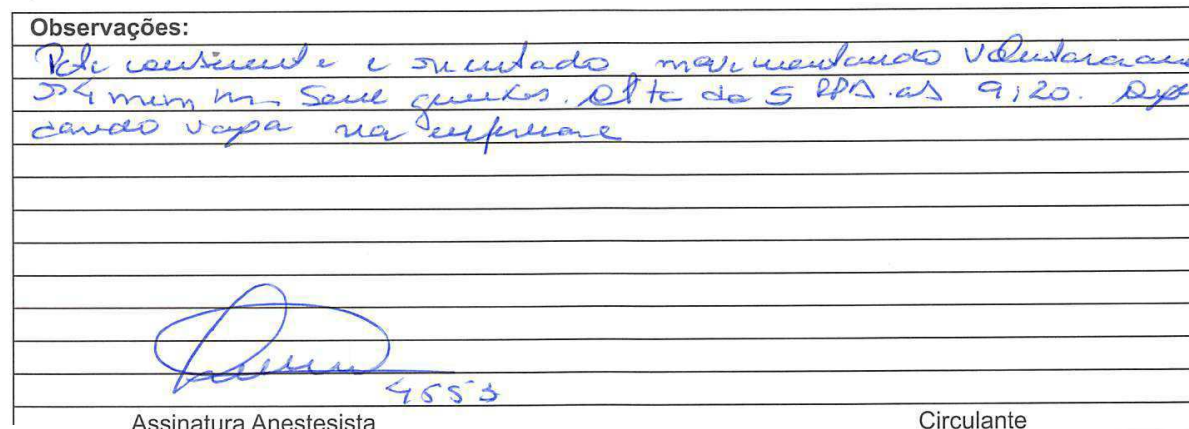 Observações:
Pcte consciente e orientado movimentando voluntariam
os 4 mmm sem queixas. Alta da SRPA as 9:20. Agu
dando vaga na enfermaria
4553
Assinatura Anestesista
Circulante